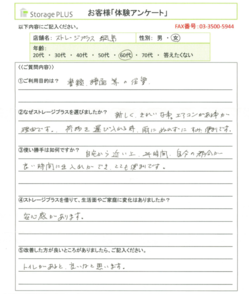 Storage PLUS お客様「体験アンケート」
以下内容にご記入ください。 FAX番号: 03-3500-5944
店舗名: ストレージプラス 性別: 男・女
年齢:
20代・30代・40代・50代・60代・70代・答えたくない
《ご質問内容》
①ご利用目的は?
書類 等の保管
②なぜストレージプラスを選びましたか?
新しく、きれいな事、エアコンがある事が
理由です。 荷物を運び入れる時 雨にぬれずにとても便利です。
③使い勝手は如何ですか?
自宅から近い上 24時間 自分の都合の
良い時間に出入れができ とても便利です。
④ストレージプラスを借りて、生活面やご家庭に変化はありましたか?
安心感があります。
⑤改善した方が良いところがありましたら、ご記入ください。
トイレがあると 良いなと思います。